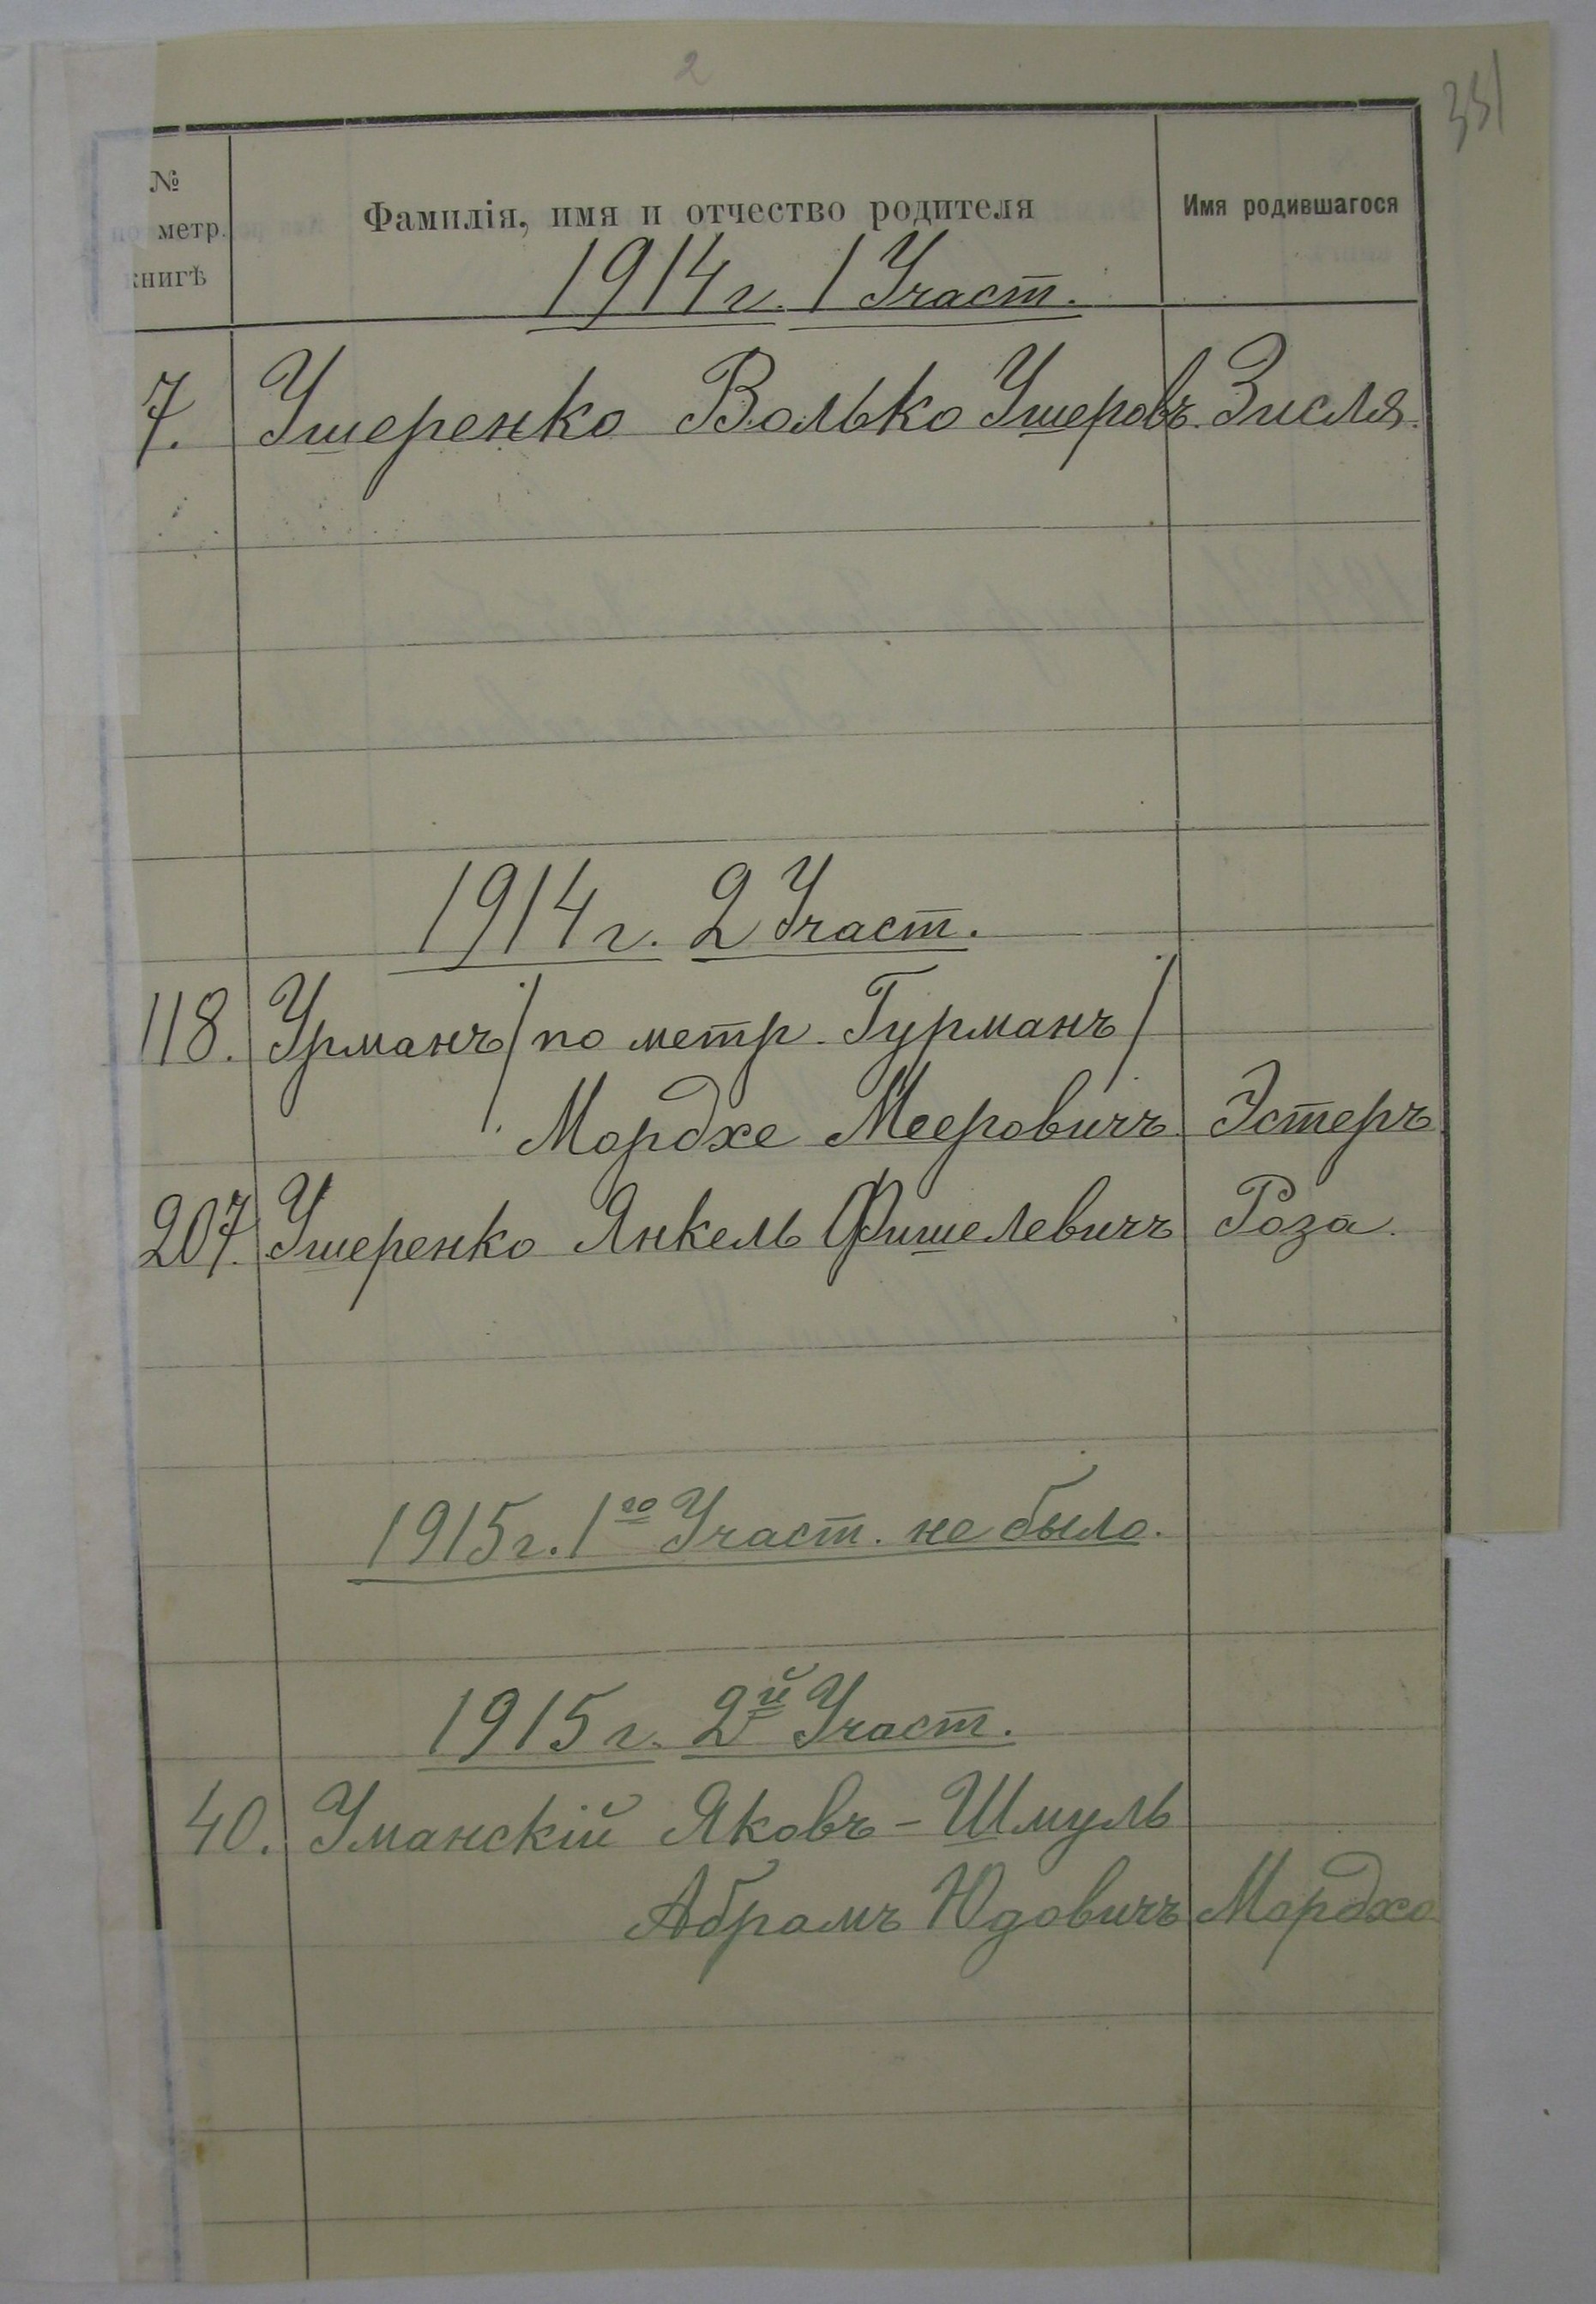 2
351
№
по метр.
книгѣ
Фамилія, имя и отчество родителя
Имя родившагося
1914 г. 1 Участ.
7. Ушеренко Волько Ушеровъ. Зисля.
1914 г. 2 Участ.
118. Урманъ / по метр. Гурманъ /
Мордхе Мееровичъ Эстеръ
207. Ушеренко Янкель Фишелевичъ Роза.
1915 г. 1го Участ. не было.
1915 г. 2й Участ.
40. Уманскій Яковъ-Шмуль
Абрамъ Юдовичъ Мордхо